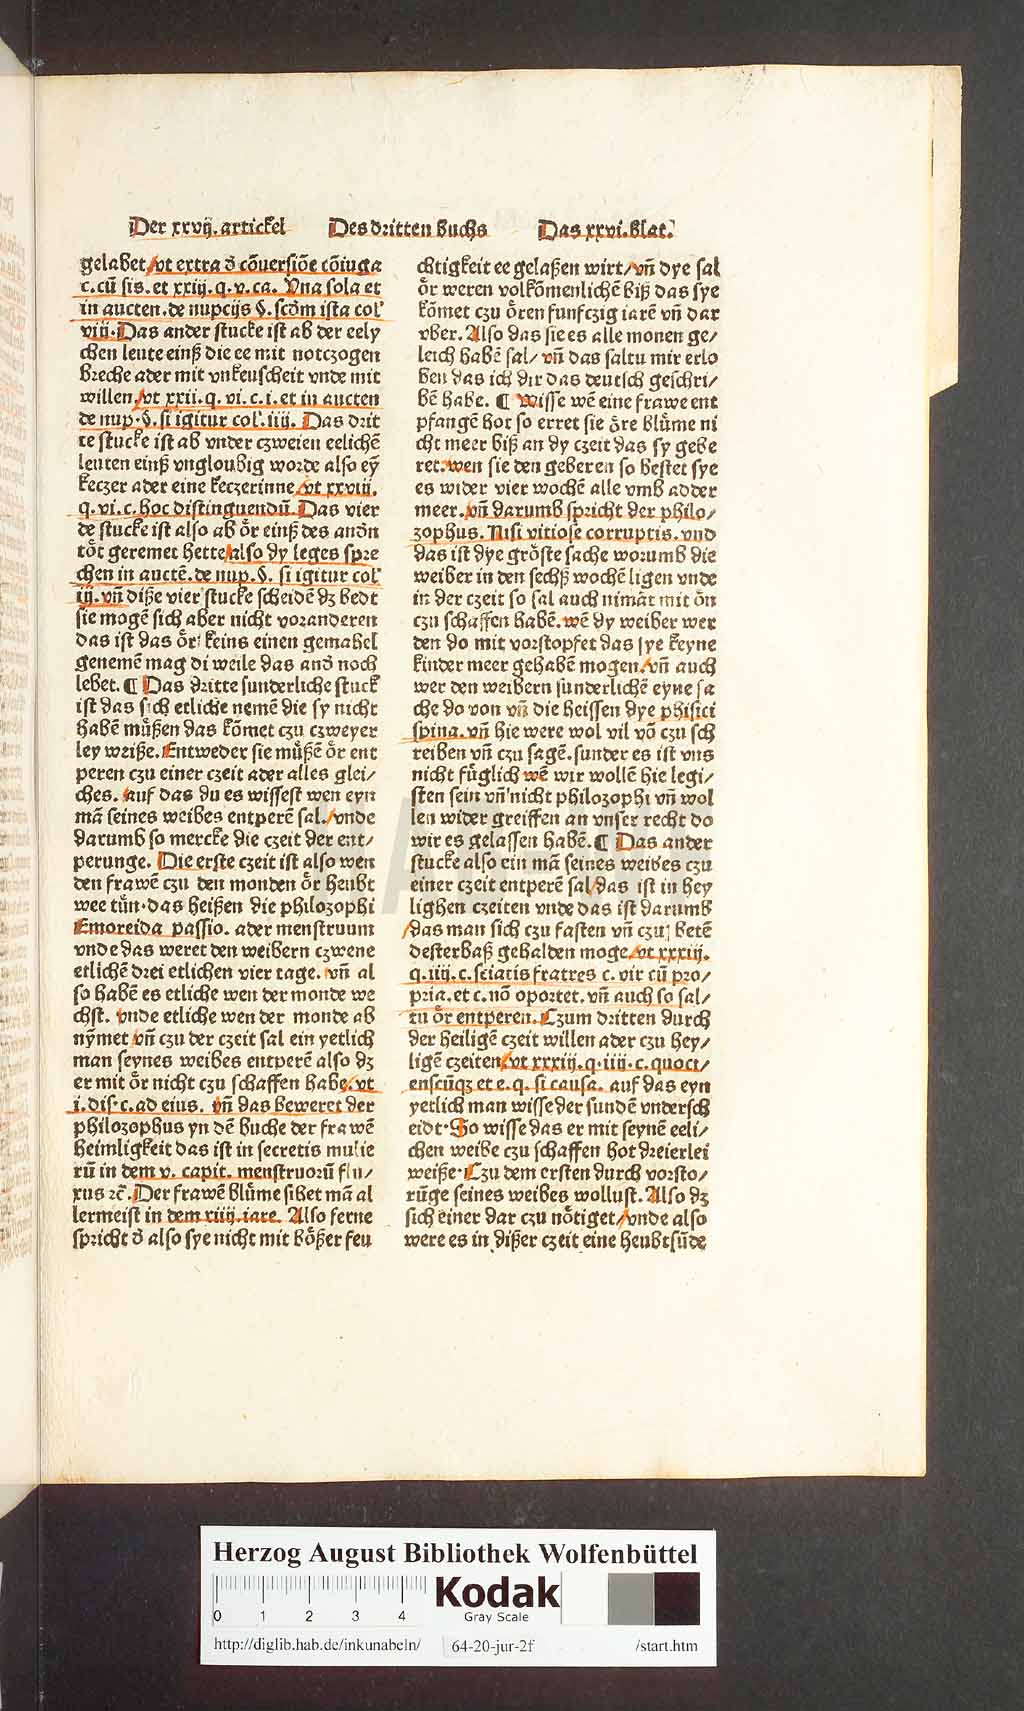 Der xxvij. artickel Des dritten buchs Das xxvi. blat.
gelabet / vt extra đ cōuersiōe cōiuga
c. cū sis. et xxiij. q. v. ca. Vna sola et
in aucten. de nupcijs §. scdm ista col'
viij. Das ander stucke ist ab der eely
chen leute einß die ee mit notczogen
breche ader mit vnkeuscheit vnde mit
willen / vt xxii. q. vi. c. i. et in aucten
de nup. §. si igitur col'. iiij. Das drit
te stucke ist ab vnder czweien eelichē
leuten einß vngloubig worde also eȳ
keczer ader eine keczerinne / vt xxviij.
q. vi. c. hoc distinguendū. Das vier
de stucke ist also ab ȯr einß des andn̄
tȯt geremet hette / also dy leges spre
chen in auctē. de nup. §. si igitur col'
iij. vn̄ diße vier stucke scheidē dʒ bedt
sie mogē sich aber nicht voranderen
das ist das ȯr keins einen gemahel
genemē mag di weile das and noch
lebet. ¶ Das dritte sunderliche stuck
ist das sich etliche nemē die sy nicht
habē mu̇ßen das kȯmet czu czweyer
ley weiße. Entweder sie mu̇ßē ȯr ent
peren czu einer czeit ader alles glei/
ches. auf das du es wissest wen eyn
mā seines weibes entperē sal. / vnde
darumb so mercke die czeit der ent/
perunge. Die erste czeit ist also wen
den frawē czu den monden ȯr heubt
wee tu̇n. das heißen die philozophi
Emoreida passio. ader menstruum
vnde das weret den weibern czwene
etlichē drei etlichen vier tage. vn̄ al
so habē es etliche wen der monde we
chst. vnde etliche wen der monde ab
nȳmet vn̄ czu der czeit sal ein yetlich
man seynes weibes entperē also dʒ
er mit ȯr nicht czu schaffen habe. vt
i. dis. c. ad eius. vn̄ das beweret der
philozophus yn dē buche der frawē
heimligkeit das ist in secretis mulie
rū in dem v. capit. menstruorū flu/
xus ꝛc̄. Der frawē blu̇me sihet mā al
lermeist in dem xiiij. iare. Also ferne
spricht đ also sye nicht mit bȯßer feu
chtigkeit ee gelaßen wirt / vn̄ dye sal
ȯr weren volkȯmenlichē biß das sye
kȯmet czu ȯren funfczig iarē vn̄ dar
vber. Also das sie es alle monen ge/
leich habē sal / vn̄ das saltu mir erlo
ben das ich dir das deutsch geschri/
bē habe. ¶ Wisse wē eine frawe ent
pfangē hot so erret sie ȯre blu̇me ni
cht meer biß an dy czeit das sy gebe
ret. wen sie den geberen so bestet sye
es wider vier wochē alle vmb ad der
meer. vn̄ darumb spricht der philo/
zophus. Nisi vitiose corruptis. vnd
das ist dye grȯste sache worumb die
weiber in den sechß wochē ligen vnde
in der czeit so sal auch nimāt mit ȯn
czu schaffen habē. wē dy weiber wer
den do mit vorstopfet das sye keyne
kinder meer gehabē mogen. / vn̄ auch
wer den weibern sunderlichē eyne sa
che do von vn̄ die heissen dye phisici
spina. vn̄ hie were wol vil vō czu sch
reiben vn̄ czu sagē. sunder es ist vns
nicht fu̇glich wē wir wollē hie legi/
sten sein vn̄ nicht philozophi vn̄ wol
len wider greiffen an vnser recht do
wir es gelassen habē. ¶ Das ander
stucke also ein mā seines weibes czu
einer czeit entperē sal / das ist in hey
lighen czeiten vnde das ist darumb
/ das man sich czu fasten vn̄ czu betē
desterbaß gehalden moge / vt xxxiij.
q. iiij. c. sciatis fratres c. vir cū pro/
pria. et c. nō oportet. vn̄ auch so sal/
tu ȯr entperen. Czum dritten durch
der heiligē czeit willen ader czu hey/
ligē czeiten / vt xxxiij. q. iiij. c. quoci/
enscūqʒ et e. q. si causa. auf das eyn
yetlich man wisse der sundē vndersch
eidt. So wisse das er mit seynē eeli/
chen weibe czu schaffen hot dreierlei
weiße. Czu dem ersten durch vorsto/
ru̇ge seines weibes wollust. Also dʒ
sich einer dar czu nȯtiget / vnde also
were es in dißer czeit eine heubtsu̇de
Herzog August Bibliothek Wolfenbüttel
0 1 2 3 4
Kodak
Gray Scale
http://diglib.hab.de/inkunabeln/ 64-20-jur-2f /start.htm